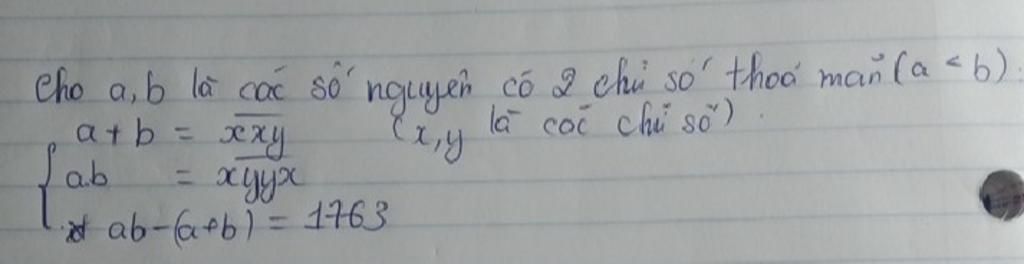 Cho a, b là các số nguyên có 2 chữ số thoả mãn (a < b).
a + b = \overline{xxy} (x, y là các chữ số).
ab = \overline{xyyx}
ab - (a+b) = 1763